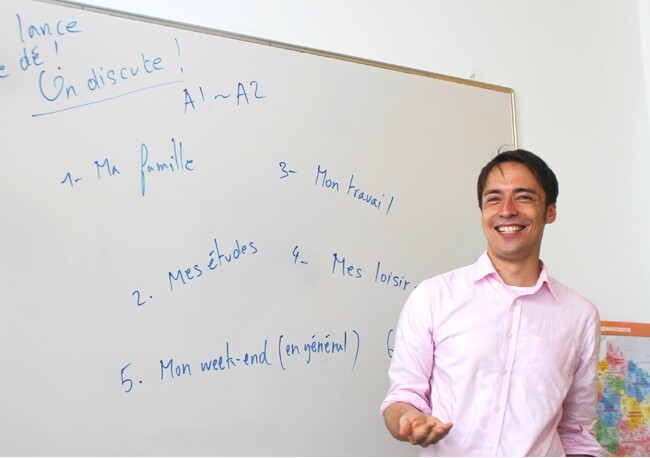 lance
dé !
On discute !
A1 ~ A2
1- Ma famille
3- Mon travail
2. Mes études
4- Mes loisir
5. Mon week-end (en général)
ADMINISTRATIVE